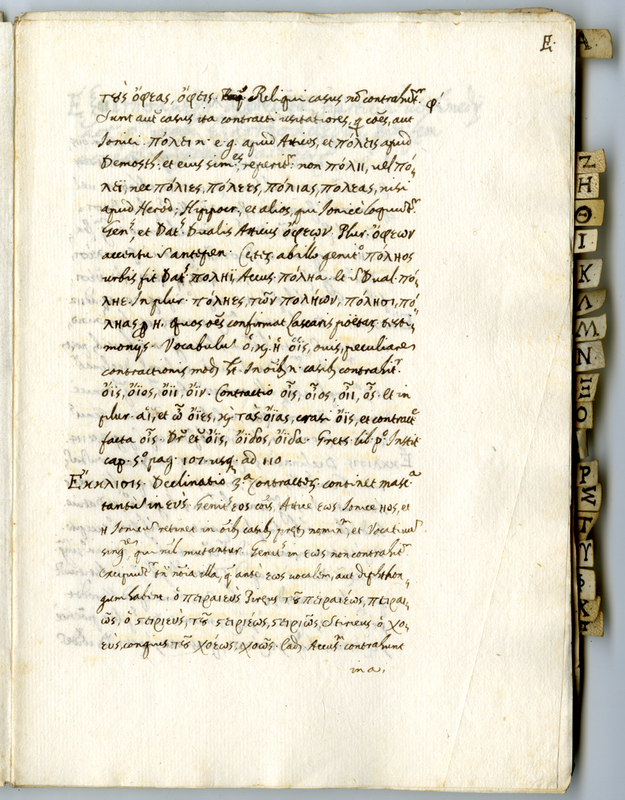 E.
τοὺς ὄφεας, ὄφεις. Reliqui casus nō contrahūt.
Sunt autē casus ita contracti usitatiores, q̃ cōes, aut
Ionici. πόλει n. e.g. apud Atticos, et πόλεις apud
Demosth: et eius sim: reperit. non πόλιι, vel πό,
λεϊ, nec πόλιες, πόλεες, πόλιας, πόλεας, nisi
apud Herod; Hippocr, et alios, qui Ionicè loquūt.
Gen, et Dat Dualis Atticus ὄφεων. Plur. ὄφεων
accentu antepen.
urbis fit Dat πόληϊ, Accus. πόληα. et Dual. πό,
ληε. In plur. πόληες, τῶν πολήων, πόλησι, πό,
ληας η. quos oēs confirmat Lascaris poëtar. testi,
monijs. Vocabulū ὁ, ἡ ὄϊς, ovis, peculiarē
contractionis modū. In oīb n. casib contrahit.
ὄϊς, ὄϊος, ὄϊι, ὄϊν. Contractio οἶς, οἶος, οἶι, οἶς. et in
plur. αἱ, et ὦ ὄϊες, τὰς ὄϊας, crasi ὄϊς, et contract
facta οἶς. Dr et οἶϊς, οἴιδος, οἴιδα. Grets. lib. pº. Instit
cap. 5º. pag. 107. usq ad 110
Εκκλισις. Declinatio 3ª. contractor. continet masc.
tantū in ευς. Genit. εος cōis, Atticè εως Ionicè ηος, et
η Iones retinet in oīb casib præter nomin, et Vocativū
sing, qui nil mutantur. Genit. in εως non contrahit.
Excipiunt illa, q ante εως vocalem, aut diphthon,
gum habent. ὁ πειραιευς Piræus τοῦ πειραιέως, πειραι,
ῶς, ὁ στιριεὺς, τοῦ στιριέως, στιριῶς, Stirieus ὁ χο,
εὺς, congius τοῦ χοέως, χοῶς. Accus. contrahunt
in α,
A
Z
H
Θ
I
K
Λ
M
N
Ξ
O
P
Σ
T
Y